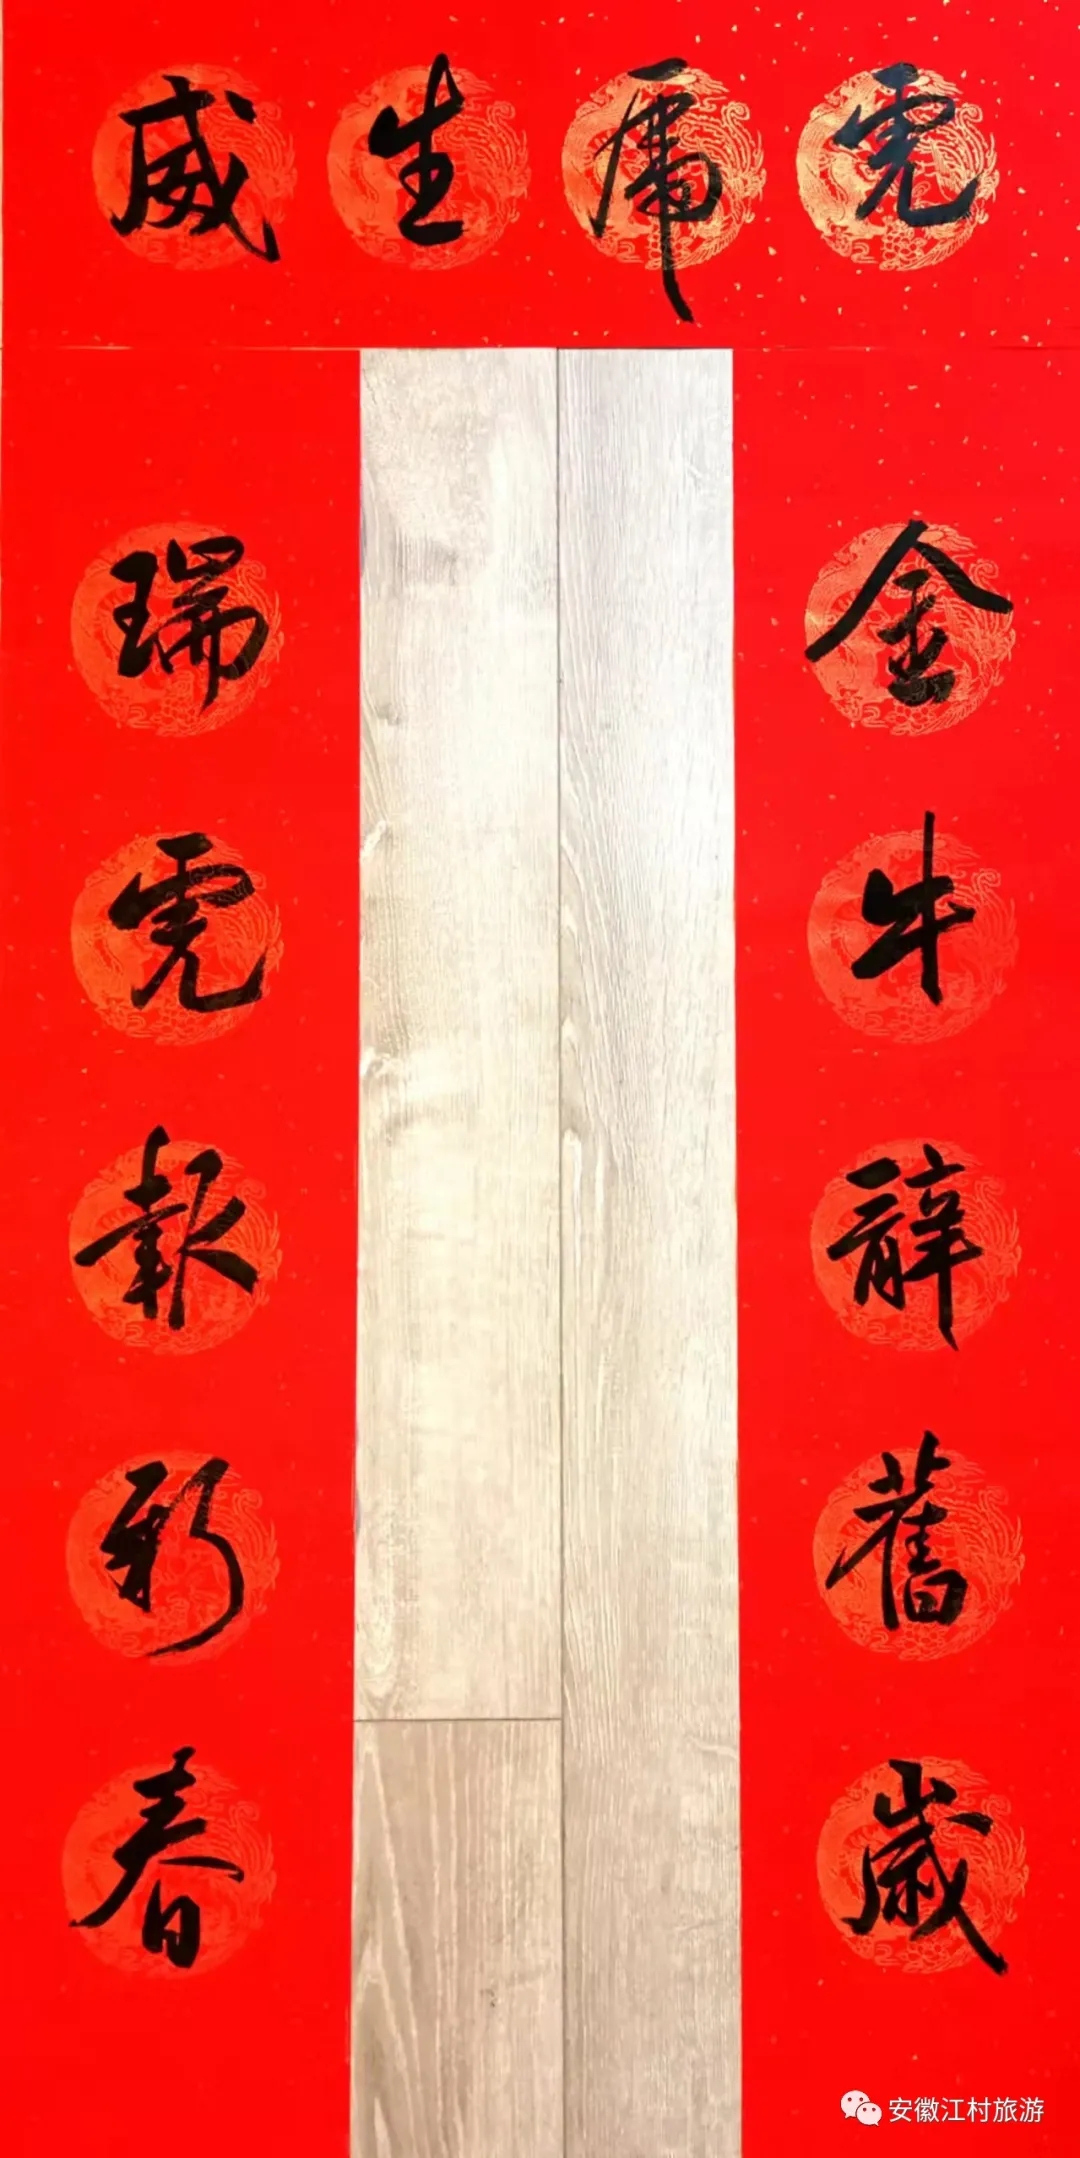 虎虎生威
金牛辭舊歲
瑞虎報新春
安徽江村旅游